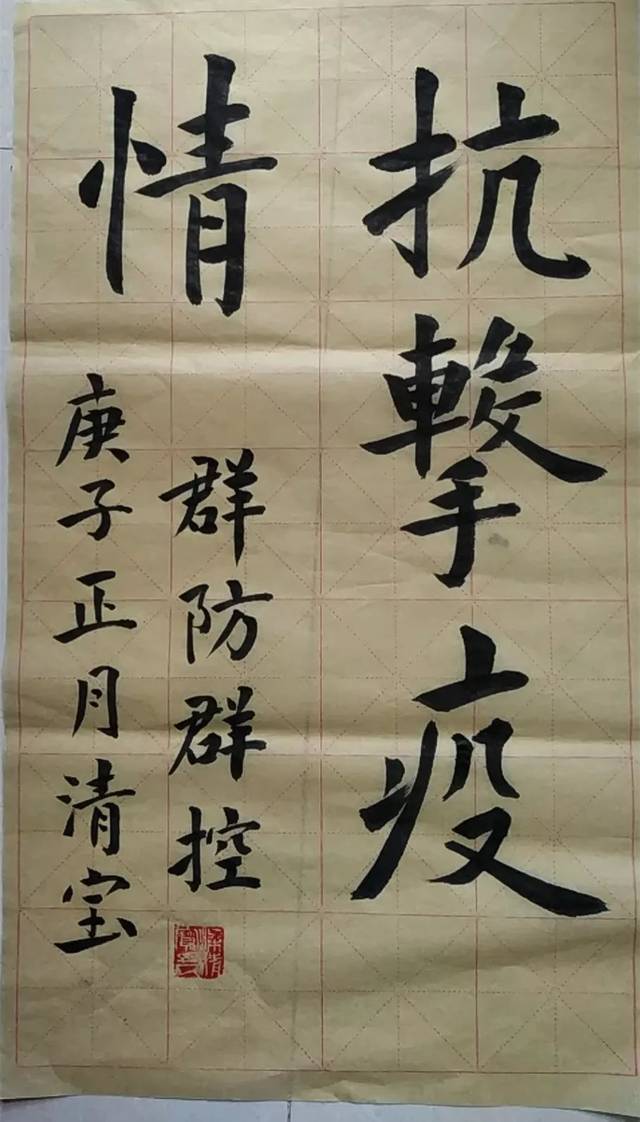 抗擊疫
情
群防群控
庚子正月清宝